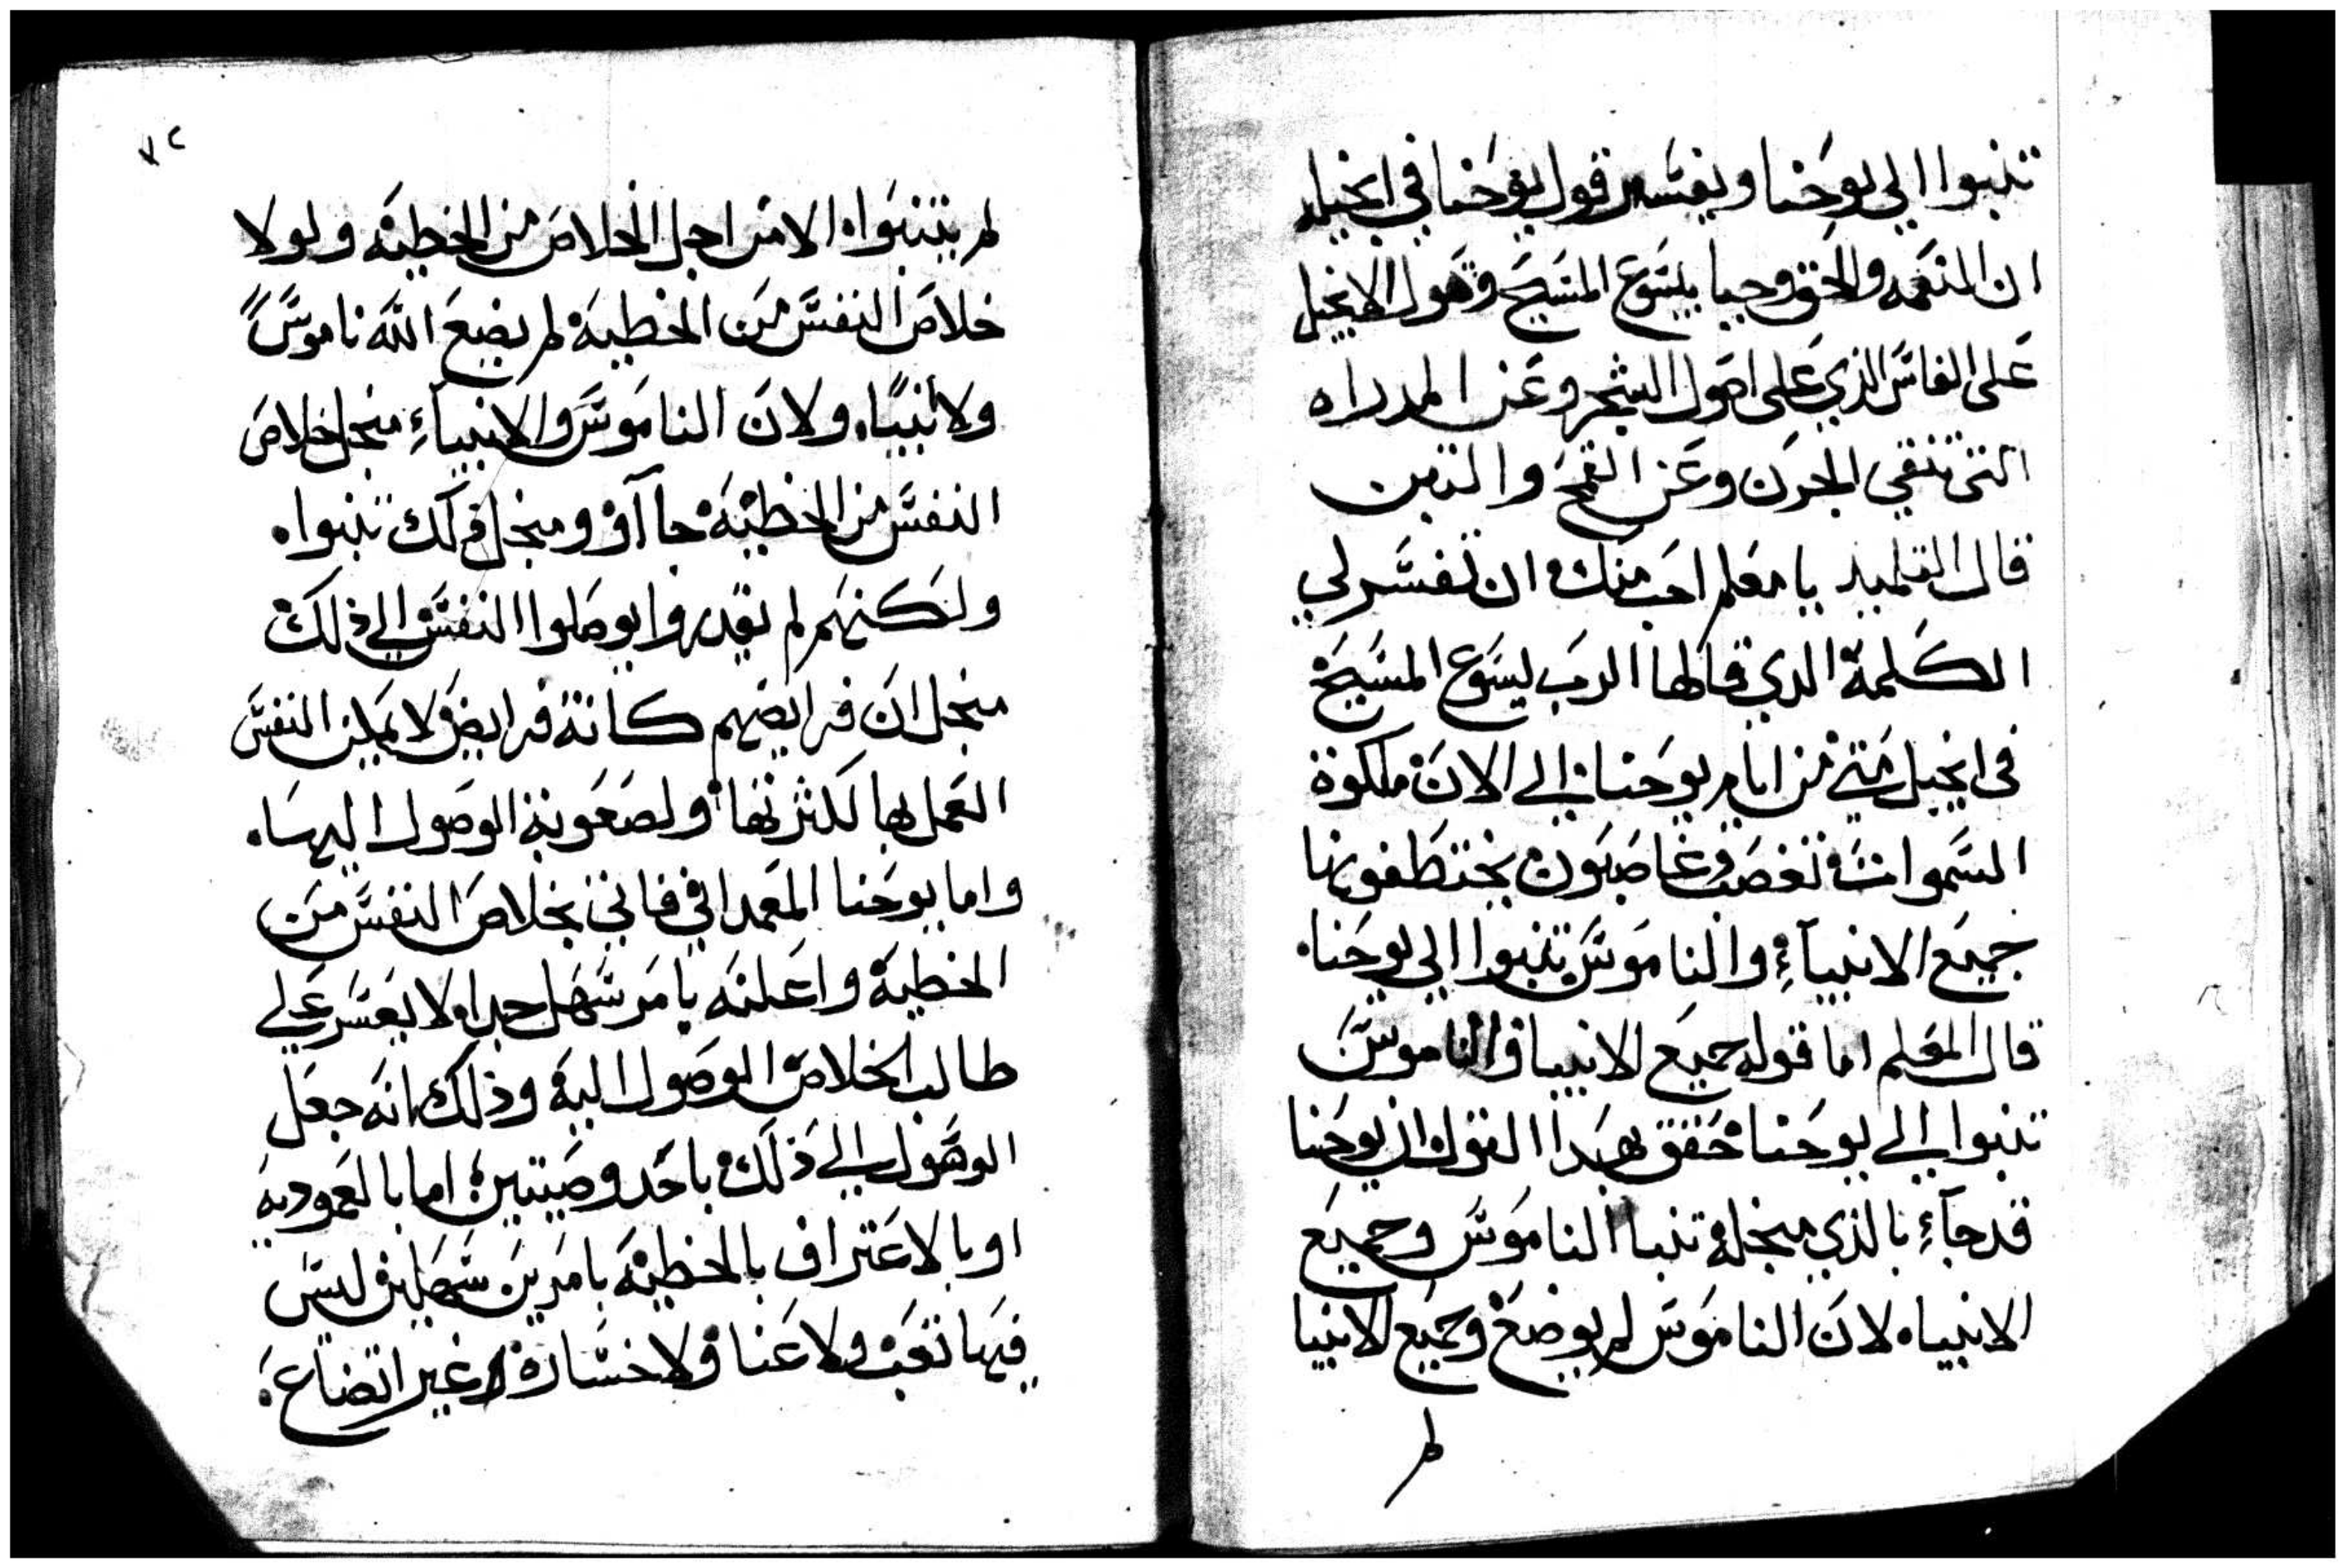 تنبوا الي يوحنا ويفسر قول يوحنا في انجيله
ان النعمه والحق وجبا بيسوع المسيح وقول الانجيل
على الفاس الذي على اصول الشجر وعن المدراه
التى تنقي الجرن وعن القمح والتبن
قال التلميد يا معلم احب منك ان تفسر لي
الكلمة الدي قالها الرب يسوع المسيح
في انجيل متي من ايام يوحنا الي الان ملكوة
السموات تغصب وغاصبون يختطفونها
جميع الانبيآء والناموس تنبوا الي يوحنا.
قال المعلم اما قوله جميع الانبيا والناموس
تنبوا الي يوحنا حقق بهدا القول ان يوحنا
قد جآء بالذي منجله تنبا الناموس وجميع
الانبياه لان الناموس لم يوضع وجميع الانبيا
لم
٧٢
لم يتنبواه الا من اجل الخلاص من الخطيه ولولا
خلاص النفس من الخطية لم يضع الله ناموسًا
ولا نبيًا، ولان الناموس والانبيآء منجل خلاص
النفس من الخطية جاآو ومنجل ذلك تنبواه
ولكنهم لم يقدروا يوصلوا النفس الي ذلك
منجل ان فرايضهم كانة فرايض لا يمكن النفس
العمل بها لكثرتها ولصعوبة الوصول اليها.
واما يوحنا المعمداني فاتي بخلاص النفس من
الخطية واعلنه بامر سهل جدا ولا يعسر علي
طالب الخلاص الوصول الية وذلك انه جعل
الوصول الي ذلك باحد وصيتين؛ اما بالعموديه
او بالاعتراف بالخطية بامرين سهلين ليس
فيها تعب ولا عنا ولا خسارة غير اتضاع؛